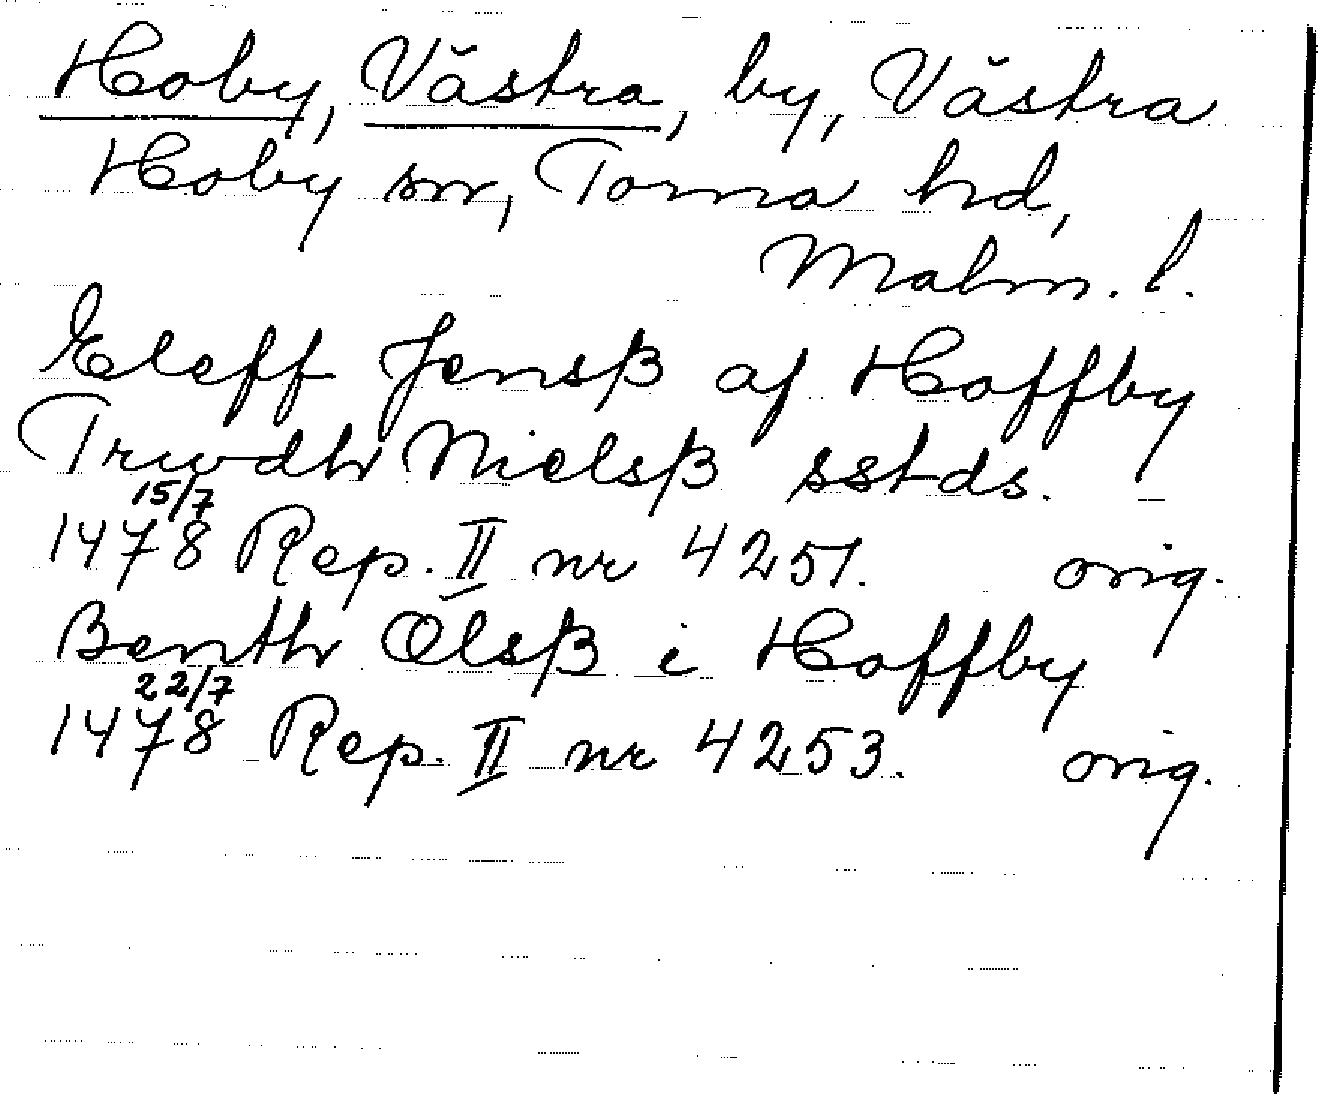 Hoby, Västra, by, Västra
Hoby sn, Torna hd,
Malm. l.
Eleff Jensß af Hoffby
Trwdh Nielsß sstds.
15/7
1478 Rep. II nr 4251. orig.
Benth Olsß i Hoffby
22/7
1478 Rep. II nr 4253. orig.